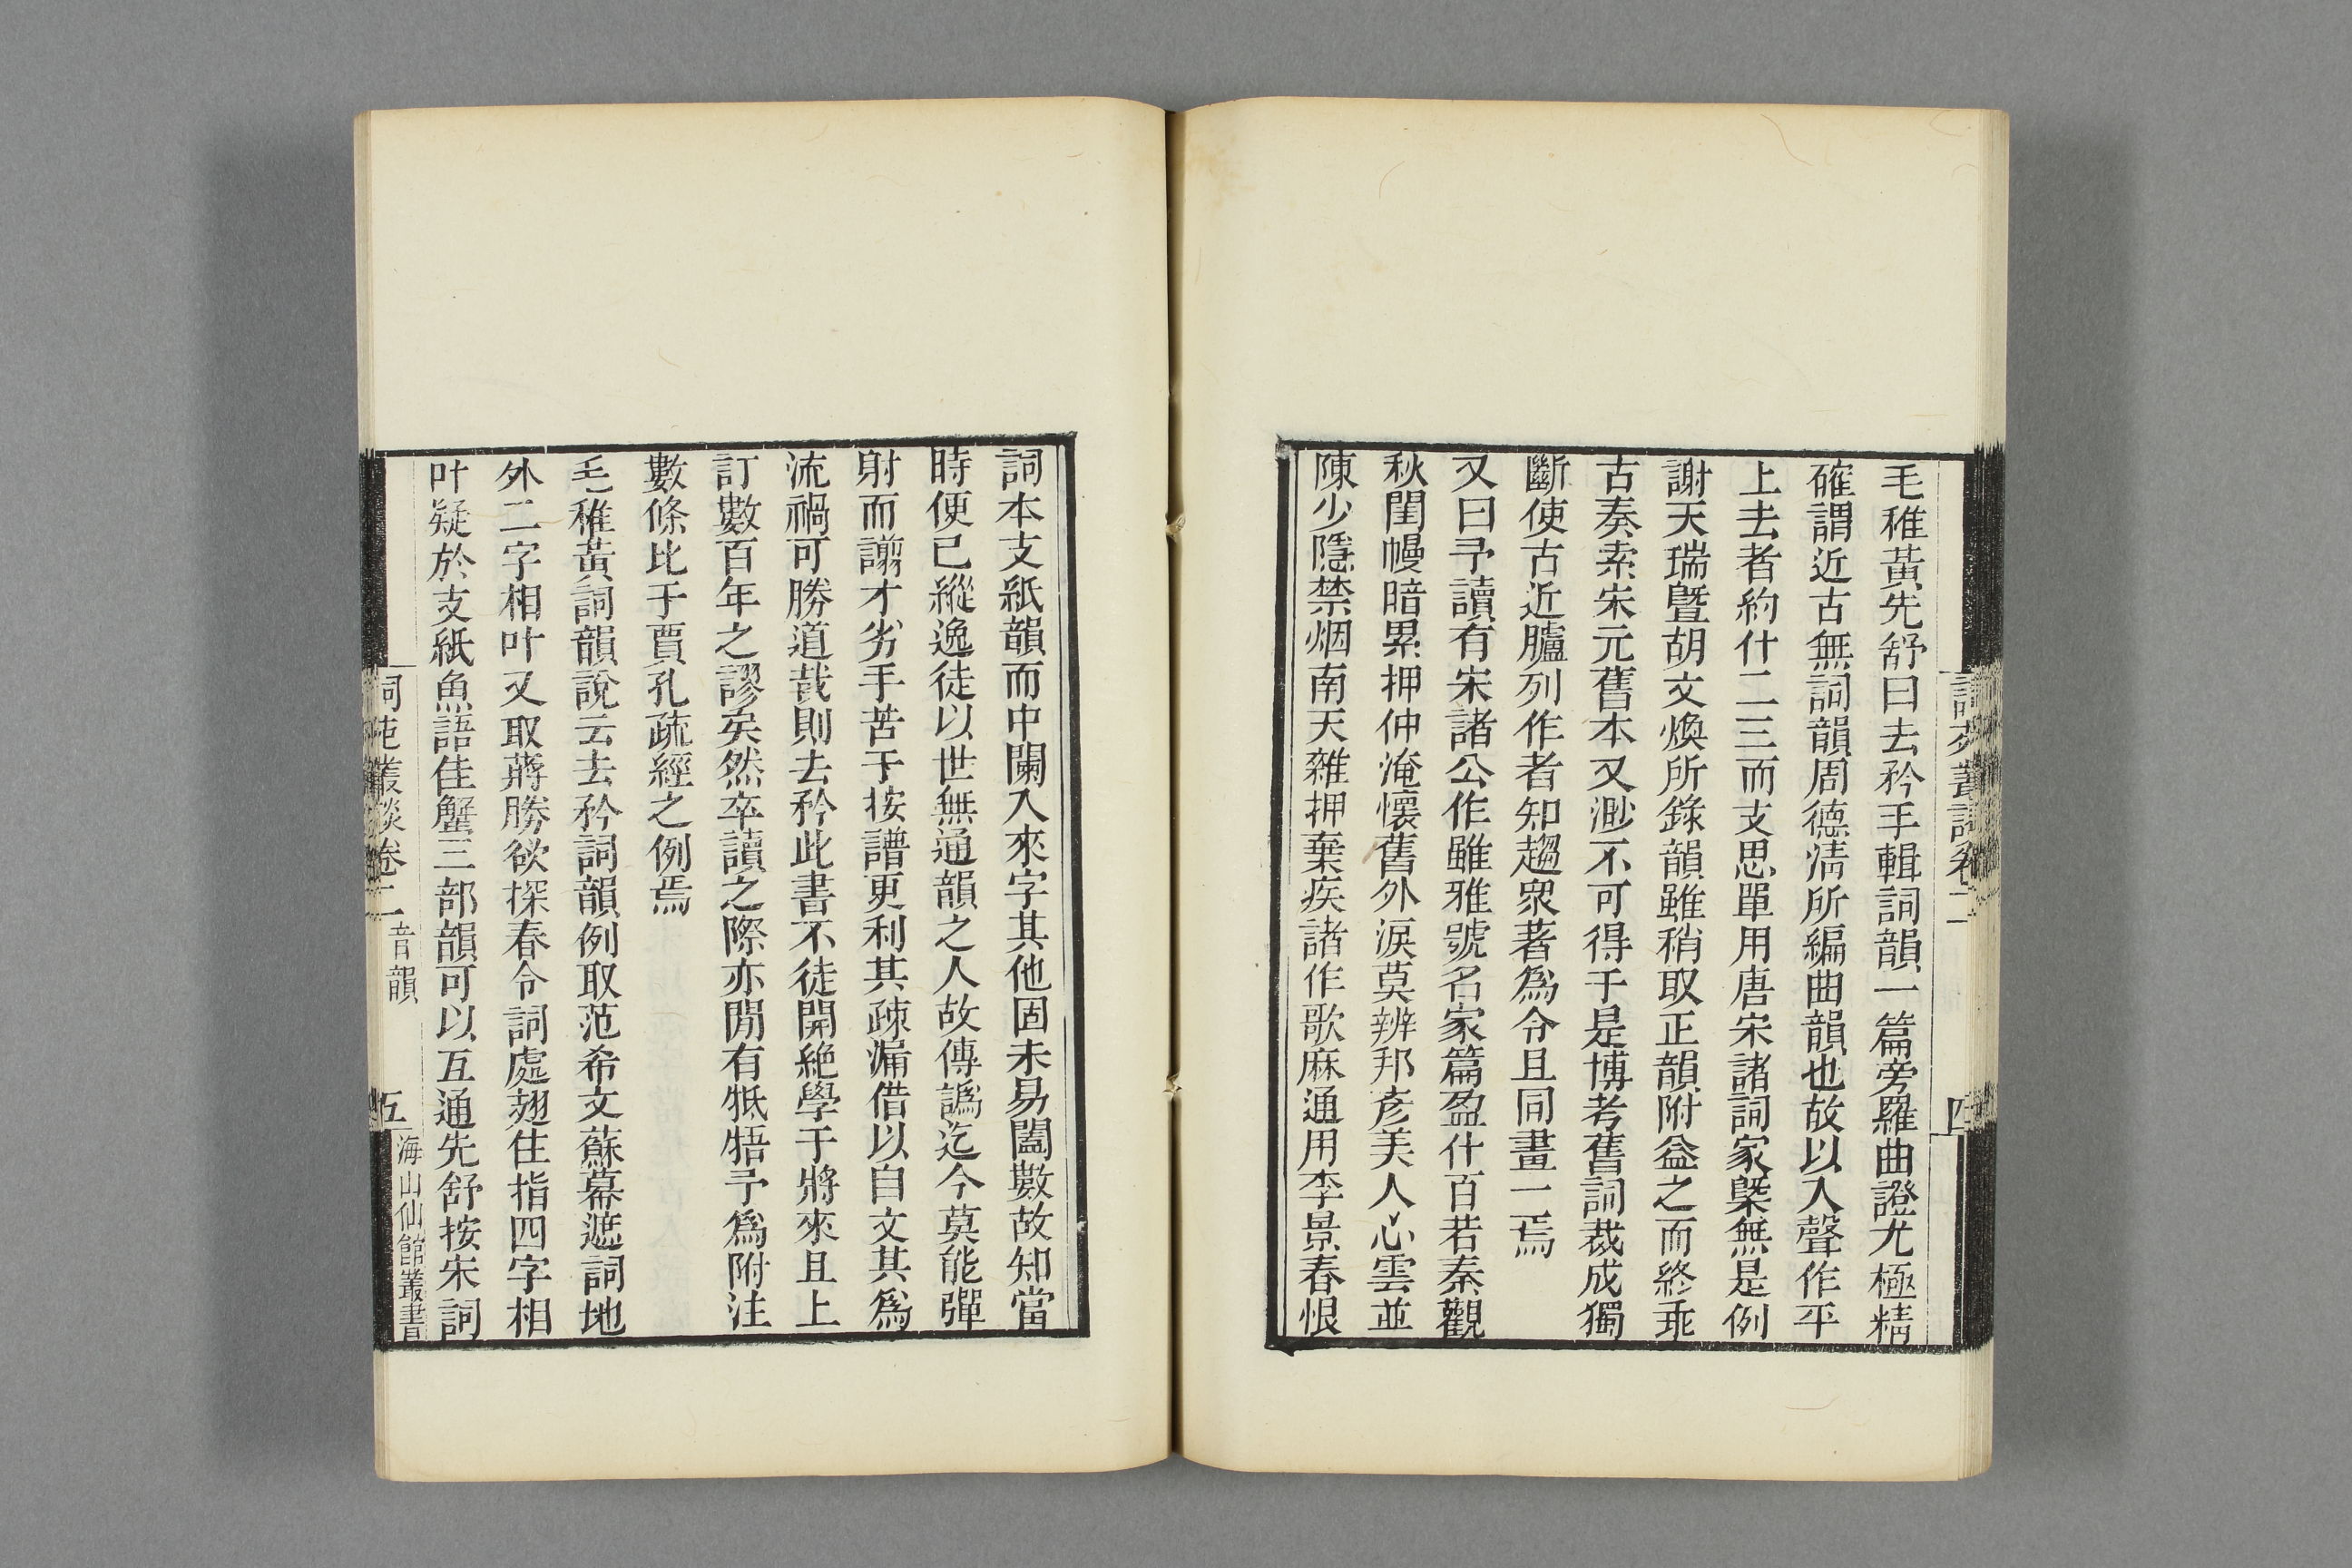 毛稚黃先舒曰去矜手輯詞韻一篇旁羅曲證尤極精
確謂近古無詞韻周德淸所編曲韻也故以入聲作平
上去者約什二三而支思單用唐宋諸詞家槩無是例
謝天瑞曁胡文煥所錄韻雖稍取正韻附益之而終乖
古奏索宋元舊本又渺不可得于是博考舊詞裁成獨
斷使古近臚列作者知趨衆著爲令且同畫一焉
又曰予讀有宋諸公作雖雅號名家篇盈什百若秦觀
秋閨幔暗累押仲淹懷舊外淚莫辨邦彥美人心雲並
陳少隱禁烟南天雜押棄疾諸作歌麻通用李景春恨
詞本支紙韻而中闌入來字其他固未易闔數故知當
時便已縱逸徒以世無通韻之人故傳譌迄今莫能彈
射而譾才劣手苦于按譜更利其疎漏借以自文其爲
流禍可勝道哉則去矜此書不徒開絶學于將來且上
訂數百年之謬矣然卒讀之際亦閒有牴牾予爲附注
數條比于賈孔疏經之例焉
毛稚黃詞韻說云去矜詞韻例取范希文蘇幕遮詞地
外二字相叶又取蔣勝欲探春令詞處翅住指四字相
叶疑於支紙魚語佳蟹三部韻可以互通先舒按宋詞
詞苑叢談卷二 音韻 五 海山仙館叢書